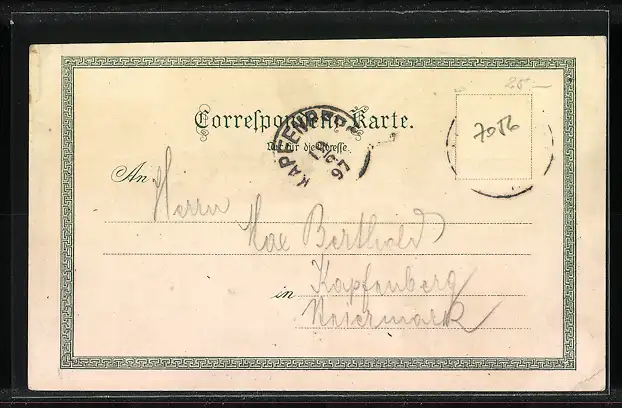 25.—
Correspondenz-Karte.
7056
Nur für die Adresse.
KAPFENBERG
97
An Herrn
Max Berthold
in Kapfenberg
Steiermark